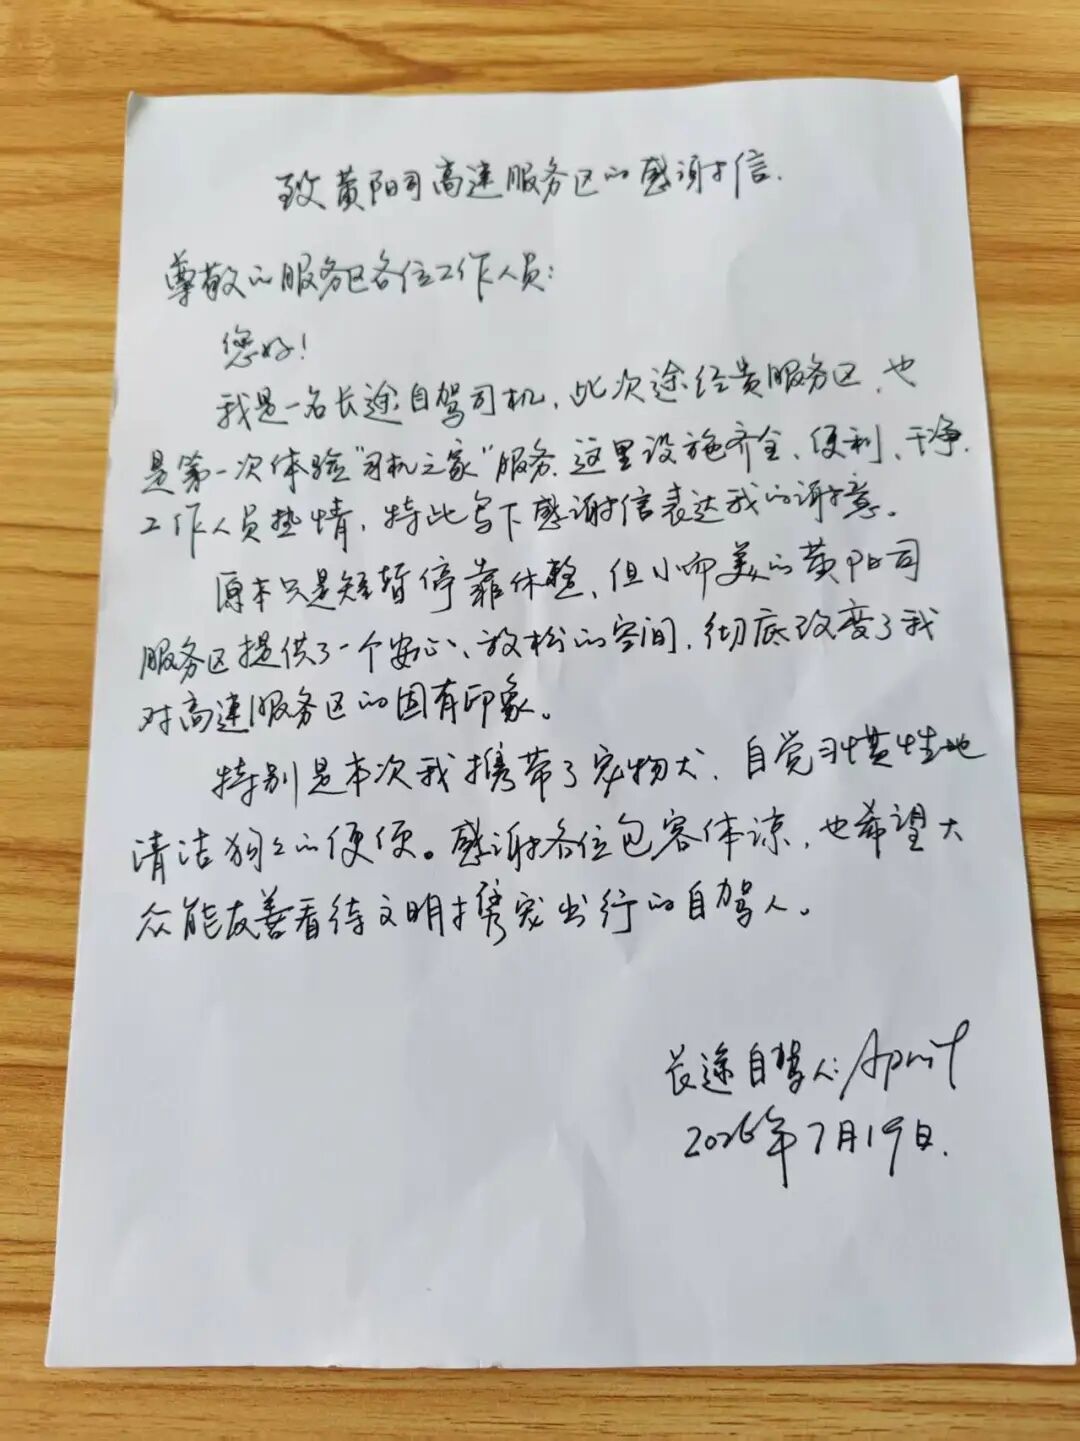 致黄阳司高速服务区的感谢信.
尊敬的服务区各位工作人员:
您好!
我是一名长途自驾司机,此次途经贵服务区,也
是第一次体验"司机之家"服务.这里设施齐全、便利、干净.
工作人员热情,特此写下感谢信表达我的谢意。
原本只是短暂停靠休整,但小而美的黄阳司
服务区提供了一个安心、放松的空间,彻底改变了我
对高速服务区的固有印象。
特别是本次我携带了宠物犬,自觉习惯性地
清洁狗狗的便便。感谢各位包容体谅,也希望大
众能友善看待文明携宠出行的自驾人。
长途自驾人:April
2026年7月19日.